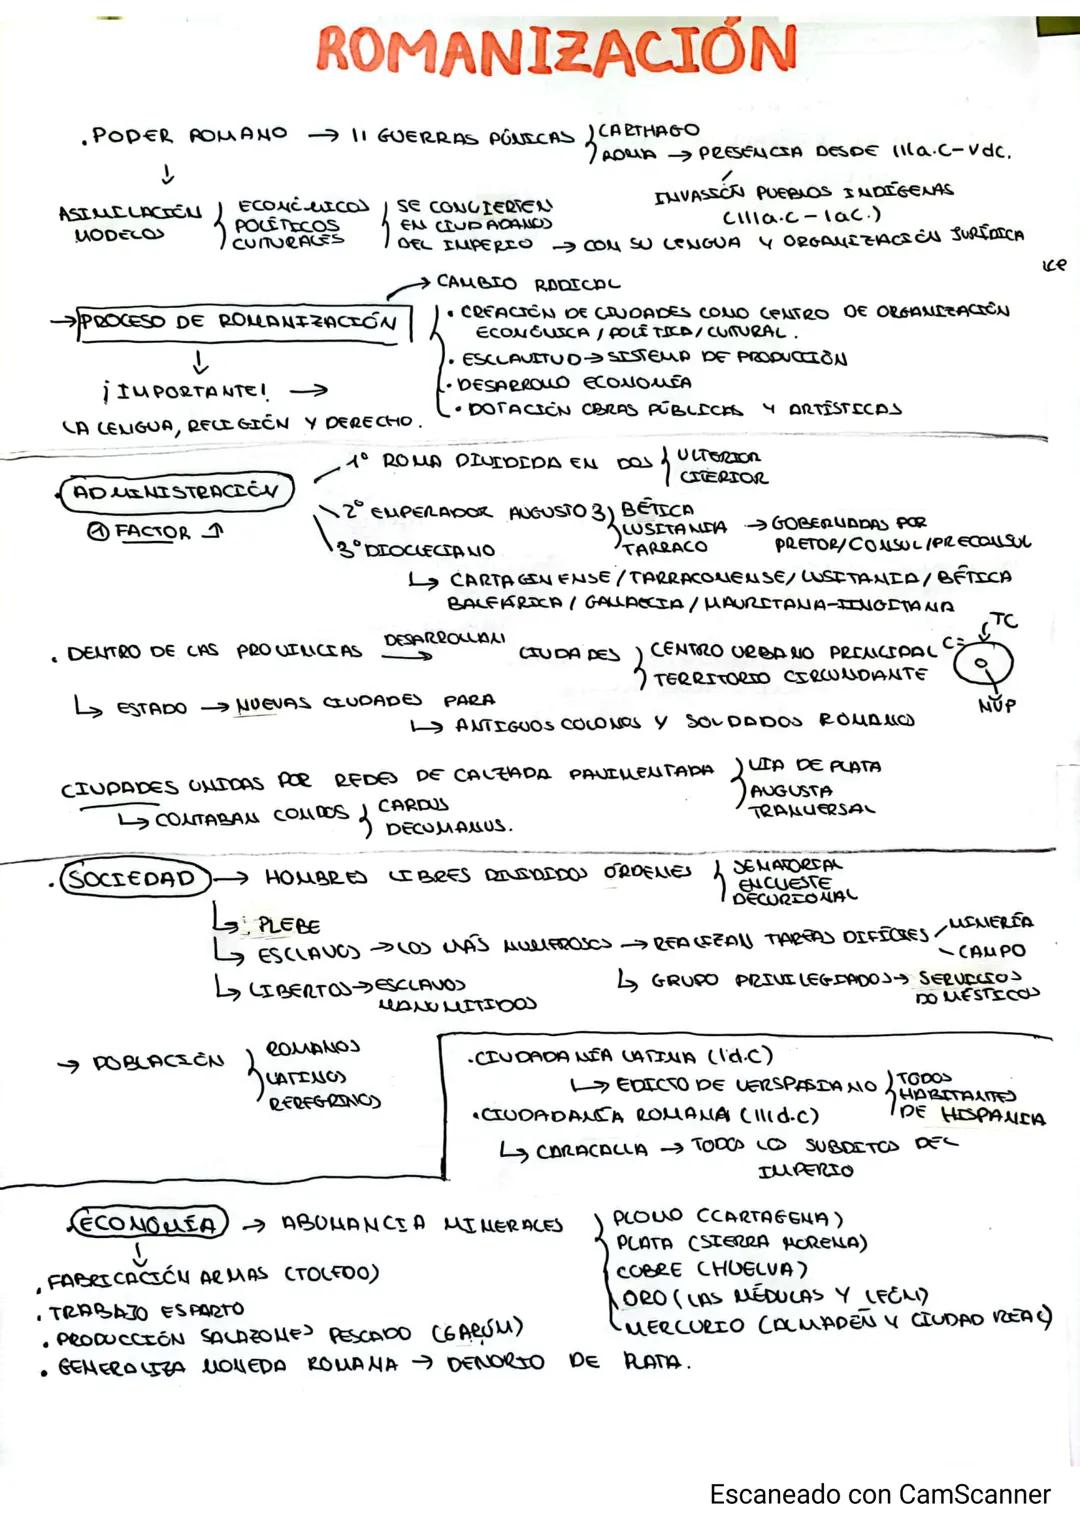 ROMANIZACIÓN
. PODER ROMANO → II GUERRAS PÚNICAS } CARTHAGO
ROMA → PRESENCIA DESDE IIIa.C-Vdc.
↓
INVASIÓN PUEBLOS INDÍGENAS
(IIIa.C - IaC.)
ASIMILACIÓN } ECONÓMICOS } SE CONVIERTEN
MODELOS POLÍTICOS EN CIUDADANOS
CULTURALES DEL IMPERIO → CON SU LENGUA Y ORGANIZACIÓN JURÍDICA
→ CAMBIO RADICAL
→ PROCESO DE ROMANIZACIÓN { • CREACIÓN DE CIUDADES COMO CENTRO DE ORGANIZACIÓN
ECONÓMICA / POLÍTICA / CUTURAL.
↓ • ESCLAVITUD → SISTEMA DE PRODUCCIÓN
¡IMPORTANTE! → • DESARROLLO ECONOMÍA
LA LENGUA, RELIGIÓN Y DERECHO. • DOTACIÓN OBRAS PÚBLICAS Y ARTÍSTICAS
1º ROMA DIVIDIDA EN DOS { ULTERIOR
CITERIOR
. ADMINISTRACIÓN
① FACTOR ↑
2º EMPERADOR AUGUSTO 3 } BÉTICA
LUSITANIA → GOBERNADAS POR
TARRACO PRETOR/CONSUL/PRECONSUL
3º DIOCLECIANO
↳ CARTAGINENSE / TARRACONENSE / LUSITANIA / BÉTICA
BALEÁRICA / GALLAECIA / MAURITANA-TINGITANA
. DENTRO DE LAS PROVINCIAS DESARROLLAN → CIUDADES } CENTRO URBANO PRINCIPAL
TERRITORIO CIRCUNDANTE
C=
TC
NUP
↳ ESTADO → NUEVAS CIUDADES PARA
↳ ANTIGUOS COLONOS Y SOLDADOS ROMANOS
CIUDADES UNIDAS POR REDES DE CALZADA PAVIMENTADA } VIA DE PLATA
AUGUSTA
TRANVERSAL
↳ CONTABAN CON DOS } CARDUS
DECUMANUS.
. SOCIEDAD → HOMBRES LIBRES DIVIDIDOS ÓRDENES { SENATORIAL
ENCUESTE
DECURIONAL
↳ PLEBE
↳ ESCLAVOS → LOS MÁS NUMEROSOS → REALIZAN TAREAS DIFÍCILES - MINERÍA
- CAMPO
↳ GRUPO PRIVILEGIADOS → SERVICIOS
DOMÉSTICOS
↳ LIBERTOS → ESCLAVOS
MANUMITIDOS
→ POBLACIÓN } ROMANOS
LATINOS
PEREGRINOS
. CIUDADANÍA LATINA (I d.C)
↳ EDICTO DE VERSPASIANO } TODOS
HABITANTES
DE HISPANIA
• CIUDADANÍA ROMANA (III d.C)
↳ CARACALLA → TODOS LO SUBDITOS DEL
IMPERIO
. ECONOMÍA → ABUNANCIA MINERALES } PLOMO (CARTAGENA)
PLATA (SIERRA MORENA)
COBRE (HUELVA)
ORO (LAS MÉDULAS Y LEÓN)
MERCURIO (ALMADÉN Y CIUDAD REAL)
↓
. FABRICACIÓN ARMAS (TOLEDO)
. TRABAJO ESPARTO
• PRODUCCIÓN SALAZONES PESCADO (GARUM)
• GENERALIZA MONEDA ROMANA → DENORIO DE PLATA.
Escaneado con CamScanner